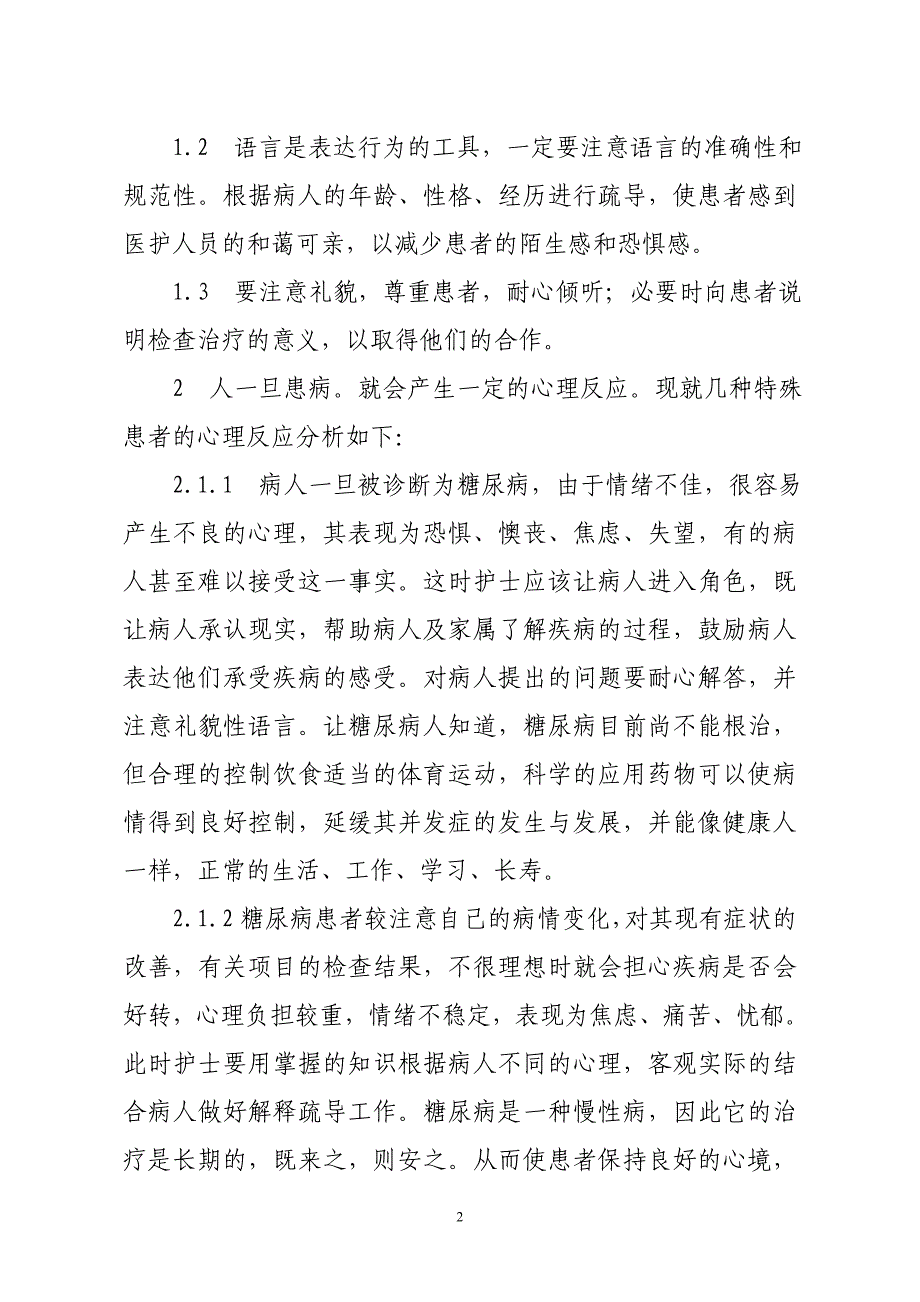 1.2 语言是表达行为的工具，一定要注意语言的准确性和
规范性。根据病人的年龄、性格、经历进行疏导，使患者感到
医护人员的和蔼可亲，以减少患者的陌生感和恐惧感。
1.3 要注意礼貌，尊重患者，耐心倾听；必要时向患者说
明检查治疗的意义，以取得他们的合作。
2 人一旦患病。就会产生一定的心理反应。现就几种特殊
患者的心理反应分析如下：
2.1.1 病人一旦被诊断为糖尿病，由于情绪不佳，很容易
产生不良的心理，其表现为恐惧、懊丧、焦虑、失望，有的病
人甚至难以接受这一事实。这时护士应该让病人进入角色，既
让病人承认现实，帮助病人及家属了解疾病的过程，鼓励病人
表达他们承受疾病的感受。对病人提出的问题要耐心解答，并
注意礼貌性语言。让糖尿病人知道，糖尿病目前尚不能根治，
但合理的控制饮食适当的体育运动，科学的应用药物可以使病
情得到良好控制，延缓其并发症的发生与发展，并能像健康人
一样，正常的生活、工作、学习、长寿。
2.1.2糖尿病患者较注意自己的病情变化，对其现有症状的
改善，有关项目的检查结果，不很理想时就会担心疾病是否会
好转，心理负担较重，情绪不稳定，表现为焦虑、痛苦、忧郁。
此时护士要用掌握的知识根据病人不同的心理，客观实际的结
合病人做好解释疏导工作。糖尿病是一种慢性病，因此它的治
疗是长期的，既来之，则安之。从而使患者保持良好的心境，
2